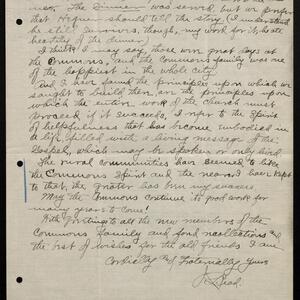 me. The Dinner was served, but we prefer
that Hegner should tell the story. (I understand
he still survives, though, my work for it, he ate
heartily of the dinner.)
I think I may say, those were great days at
the Commons, and the Commons family was one
of the happiest in the whole city.
And I have found the principles upon which we
sought to build then, are the principles upon
which the entire work of the Church must
proceed if it succeeds. I refer to the Spirit
of helpfulness that has become embodied in
a life filled with a living message of the
Gospel, which may be spoken or only lived.
The rural communities have seemed to like
the Commons Spirit and the nearer I have kept
to that, the greater has been my success.
May the Commons continue its good work for
many years to come!
With greetings to all the new members of the
Commons family and fond recollections and
the best of wishes for the old friends I am
Cordially and Fraternally Yours